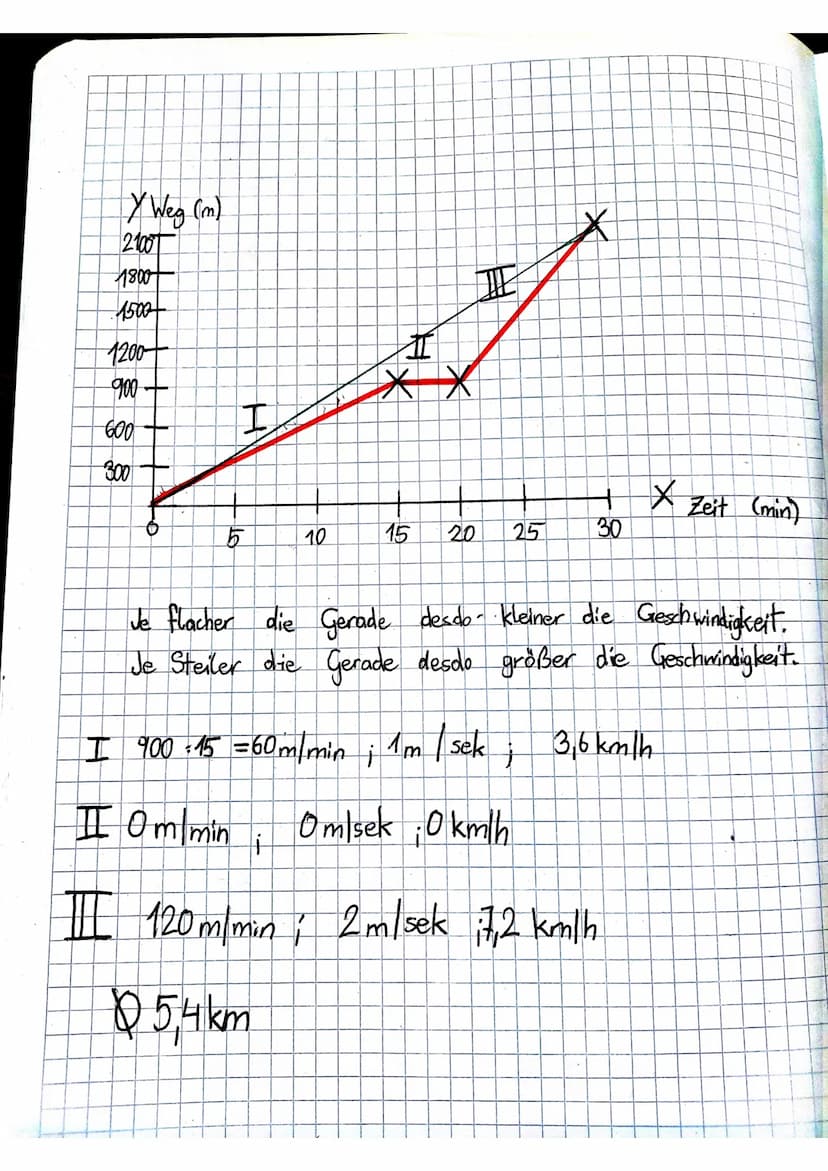 Y Weg (m)
2100
1800
1500
1200
900
600
300
I
II
III
0
5
10
15
20
25
30
X Zeit (min)
Je flacher die Gerade desdo- kleiner die Geschwindigkeit.
Je Steiler die Gerade desdo größer die Geschwindigkeit.
I 900 : 15 = 60 m/min ; 1m / sek ; 3,6 km/h
II 0 m/min ; 0 m/sek ; 0 km/h
III 120 m/min ; 2 m/sek ; 7,2 km/h
Ø 5,4 km